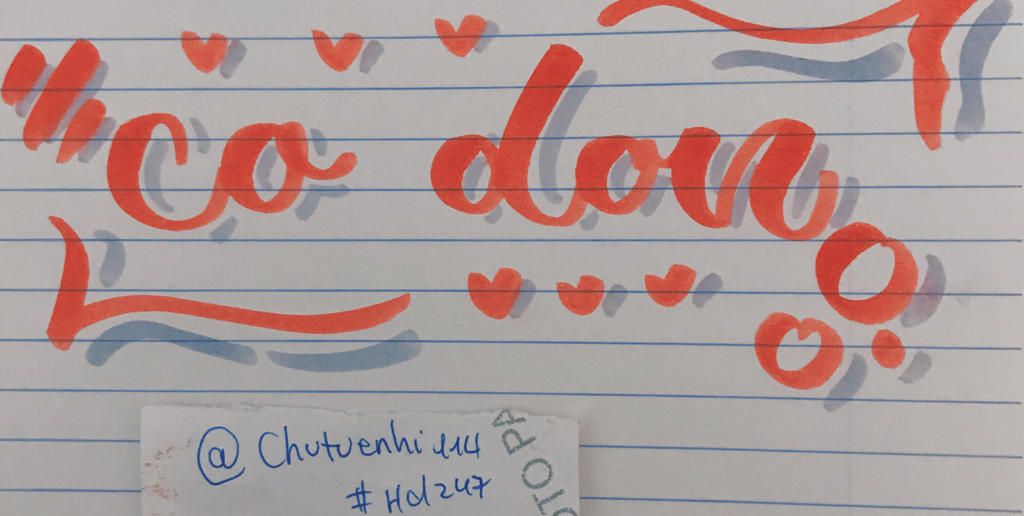 co don
@Chutuenhi114
#Hd247
OTO PA